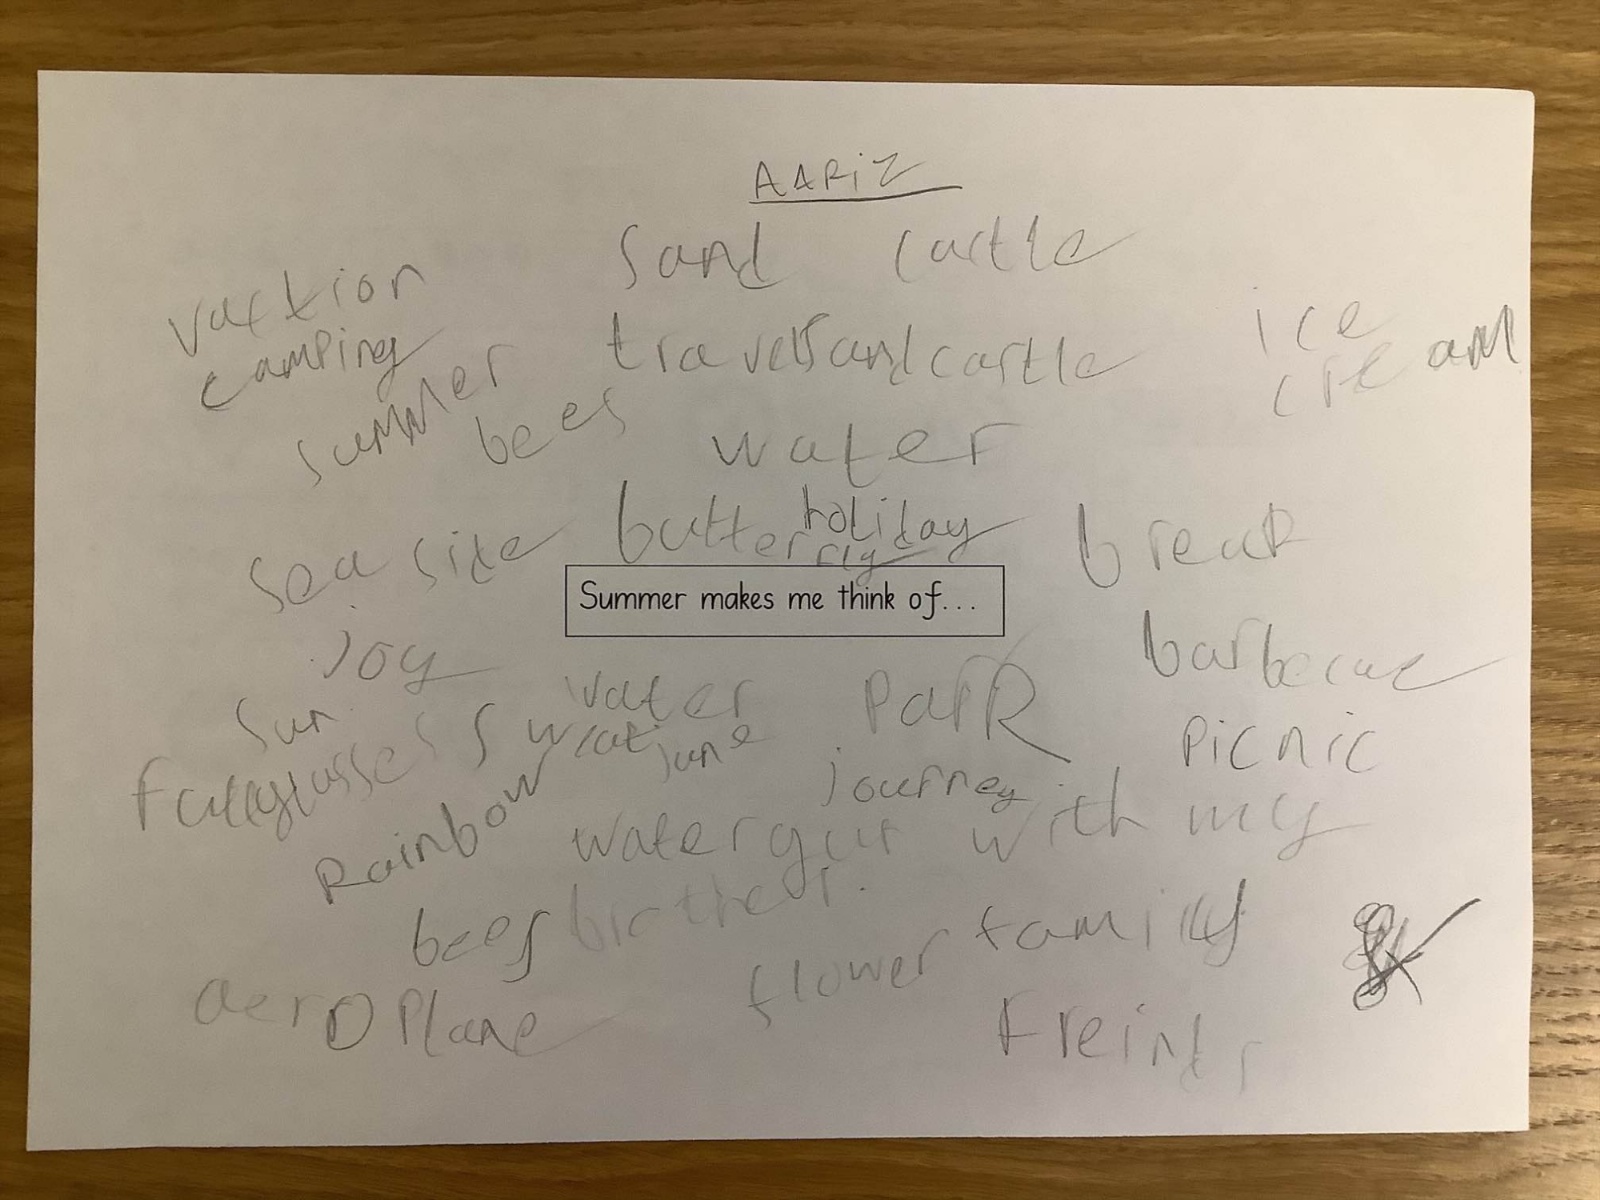 AARiZ
sand castle
vaction
camping
travel sandcastle
ice
cream
summer
bees
water
holiday
butterfly
sea side
break
Summer makes me think of...
joy
barbecue
sun
water
park
picnic
june
journey
Rainbow
water gun with my
bees
family
flower
aeroplane
Freinds